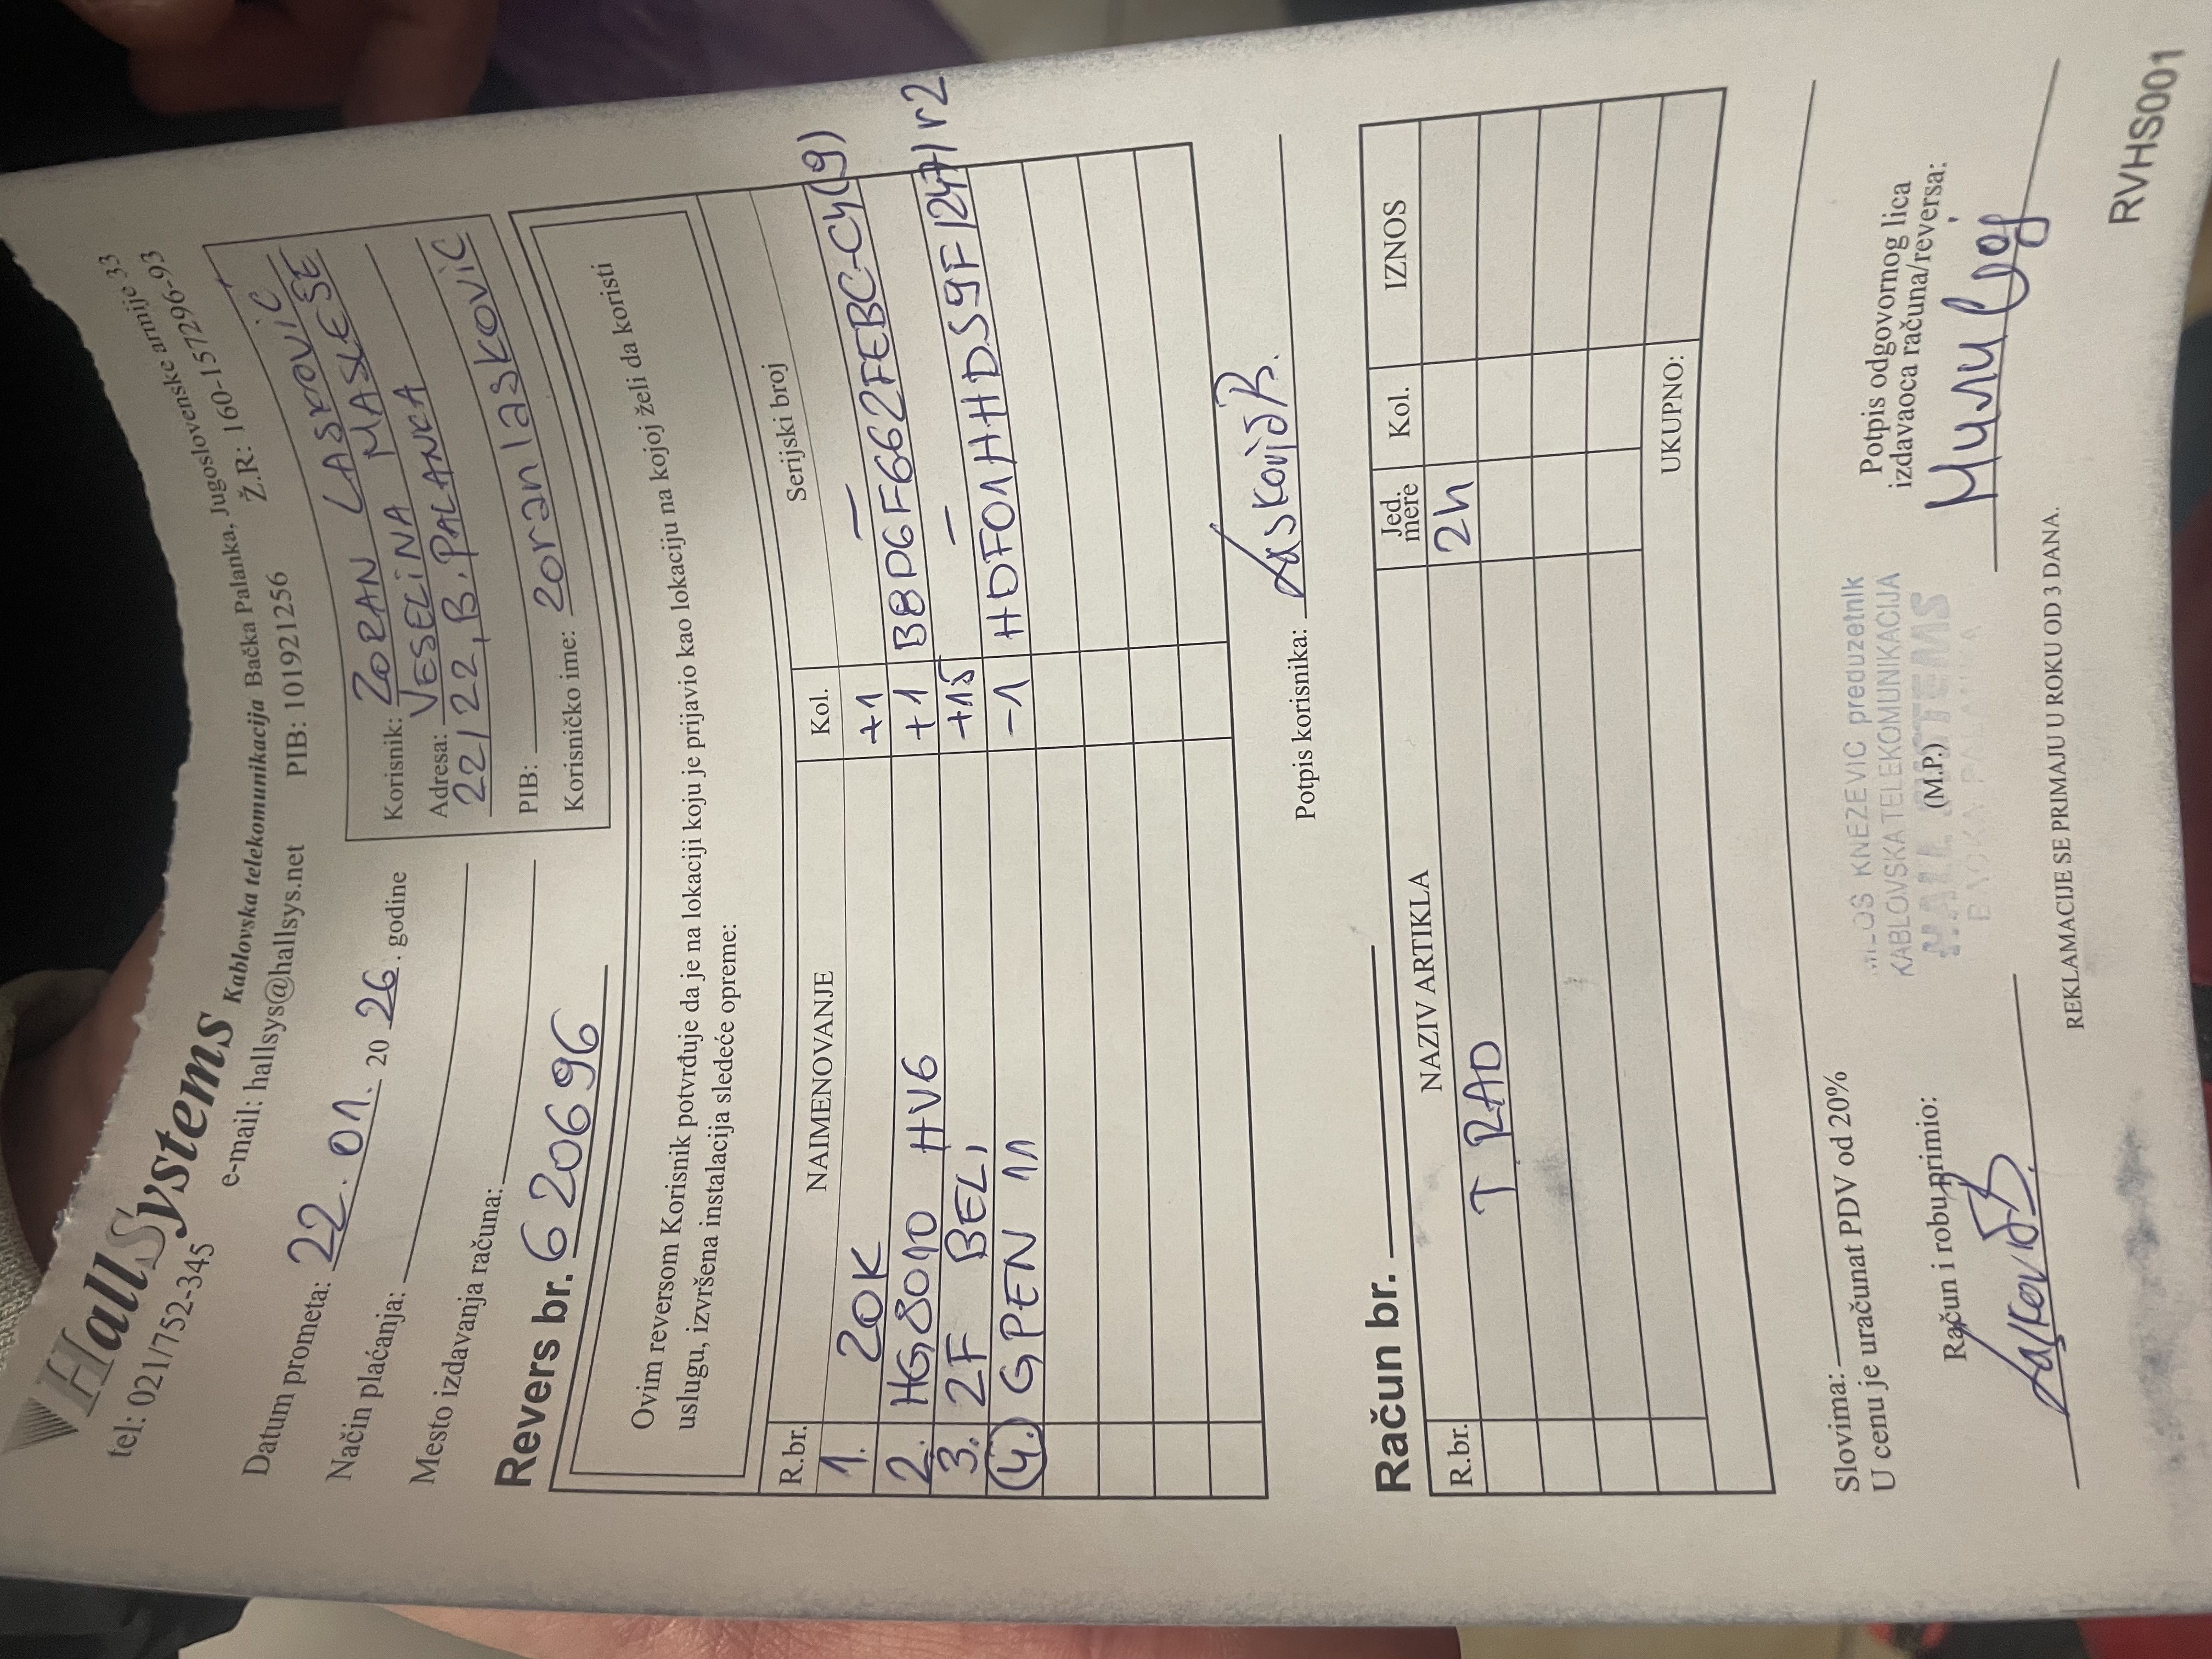 HallSystems Kablovska telekomunikacija Bačka Palanka, Jugoslovenske armije 33
tel: 021/752-345 e-mail: hallsys@hallsys.net PIB: 101921256 Ž.R: 160-157296-93
Datum prometa: 22. 01. 20 26. godine
Način plaćanja:
Mesto izdavanja računa:
Korisnik: ZORAN LASKOVIĆ
Adresa: VESELINA MASLEŠE
22/22, B. PALANKA
PIB:
Korisničko ime: zoranlaskovic
Revers br. 6 20696
Ovim reversom Korisnik potvrđuje da je na lokaciji koju je prijavio kao lokaciju na kojoj želi da koristi
uslugu, izvršena instalacija sledeće opreme:
R.br. NAIMENOVANJE Kol. Serijski broj
1. 20K +1 —
2. HG8010 HV6 +1 BBDGF6662FEBC-Cy(9)
3. 2F BELI +15 —
(4.) GPEN 11 -1 HDF01HHDS9F1247/r2
Potpis korisnika: Lasković R.
Račun br.
R.br. NAZIV ARTIKLA Jed. mere Kol. IZNOS
T RAD 2h
UKUPNO:
Slovima:
U cenu je uračunat PDV od 20%
Račun i robu primio:
MILOS KNEZEVIC preduzetnik
KABLOVSKA TELEKOMUNIKACIJA
HALL SYSTEMS
BACKA PALANKA
(M.P.)
Potpis odgovornog lica
izdavaoca računa/reversa:
REKLAMACIJE SE PRIMAJU U ROKU OD 3 DANA.
RVHS001